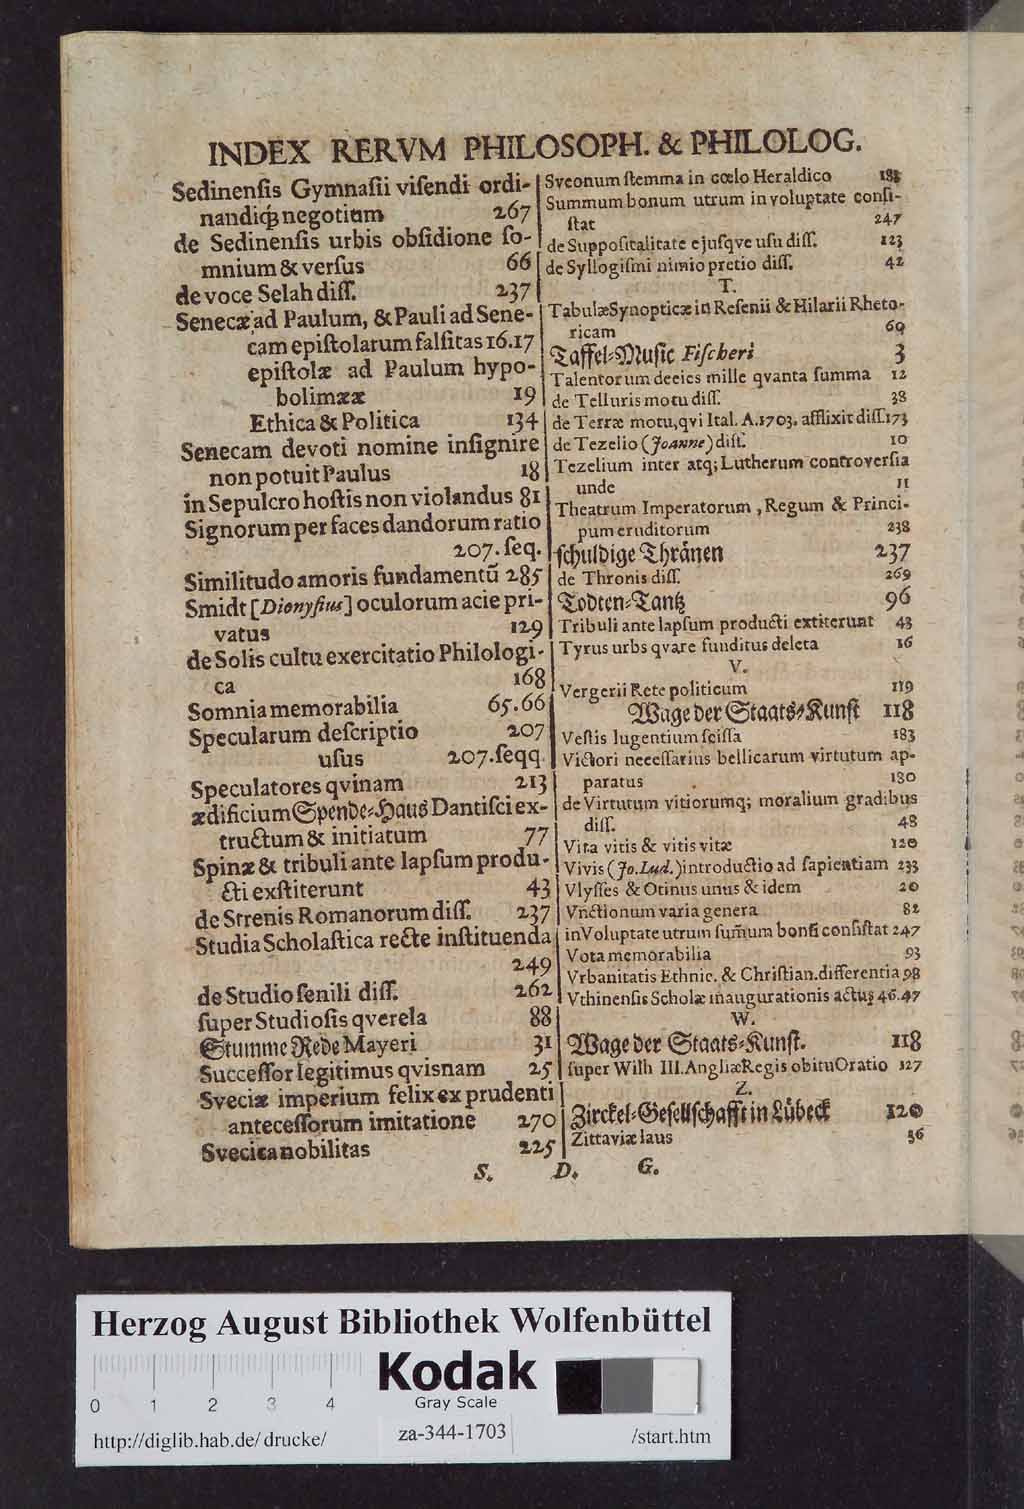 INDEX RERVM PHILOSOPH. & PHILOLOG.
Sedinenſis Gymnaſii viſendi ordi-
nandiq́; negotium 267
de Sedinenſis urbis obſidione ſo-
mnium & verſus 66
de voce Selah diſſ. 237
Senecæ ad Paulum, & Pauli ad Sene-
cam epiſtolarum falſitas 16.17
epiſtolæ ad Paulum hypo-
bolimææ 19
Ethica & Politica 134
Senecam devoti nomine inſignire
non potuit Paulus 18
in Sepulcro hoſtis non violandus 81
Signorum per faces dandorum ratio
207. ſeq.
Similitudo amoris fundamentũ 285
Smidt [Dionyſius] oculorum acie pri-
vatus 129
de Solis cultu exercitatio Philologi-
ca 168
Somnia memorabilia 65.66
Specularum deſcriptio 207
uſus 207.ſeqq.
Speculatores qvinam 213
ædificium Spende-Haus Dantiſci ex-
tructum & initiatum 77
Spinæ & tribuli ante lapſum produ-
cti exſtiterunt 43
de Strenis Romanorum diſſ. 237
Studia Scholaſtica recte inſtituenda
249
de Studio ſenili diſſ. 262
ſuper Studioſis qverela 88
Stumme Rede Mayeri 31
Succeſſor legitimus qvisnam 25
Sveciæ imperium felix ex prudenti
anteceſſorum imitatione 270
Svecica nobilitas 225
Sveonum ſtemma in cœlo Heraldico
Summum bonum utrum in voluptate conſi-
ſtat 247
de Suppoſitalitate ejuſqve uſu diſſ. 123
de Syllogiſmi nimio pretio diſſ. 42
T.
Tabulæ Synopticæ in Reſenii & Hilarii Rheto-
ricam 69
Taffel-Muſic Fiſcheri 3
Talentorum decies mille qvanta ſumma 12
de Telluris motu diſſ. 38
de Terræ motu, qvi Ital. A.1703. afflixit diſſ. 173
de Tezelio (Joanne) diſſ. 10
Tezelium inter atq; Lutherum controverſia
unde 11
Theatrum Imperatorum, Regum & Princi-
pum eruditorum 238
ſchuldige Thränen 237
de Thronis diſſ. 269
Todten-Tantz 96
Tribuli ante lapſum producti extiterunt 43
Tyrus urbs qvare funditus deleta 16
V.
Vergerii Rete politicum 119
Wage der Staats-Kunſt 118
Veſtis lugentium ſciſſa 183
Victori neceſſarius bellicarum virtutum ap-
paratus 180
de Virtutum vitiorumq; moralium gradibus
diſſ. 48
Vita vitis & vitis vitæ 120
Vivis (Jo. Lud.) introductio ad ſapientiam 233
Vlyſſes & Otinus unus & idem 20
Vnctionum varia genera 82
in Voluptate utrum ſum̃um bonũ conſiſtat 247
Vota memorabilia 93
Vrbanitatis Ethnic. & Chriſtian. differentia 98
Vthinenſis Scholæ inaugurationis actus 46.47
W.
Wage der Staats-Kunſt. 118
ſuper Wilh III. Angliæ Regis obitu Oratio 127
Z.
Zirckel-Geſellſchafft in Lübeck 120
Zittaviæ laus 36
S. D. G.
Herzog August Bibliothek Wolfenbüttel
Kodak
Gray Scale
0 1 2 3 4
http://diglib.hab.de/drucke/ za-344-1703 /start.htm